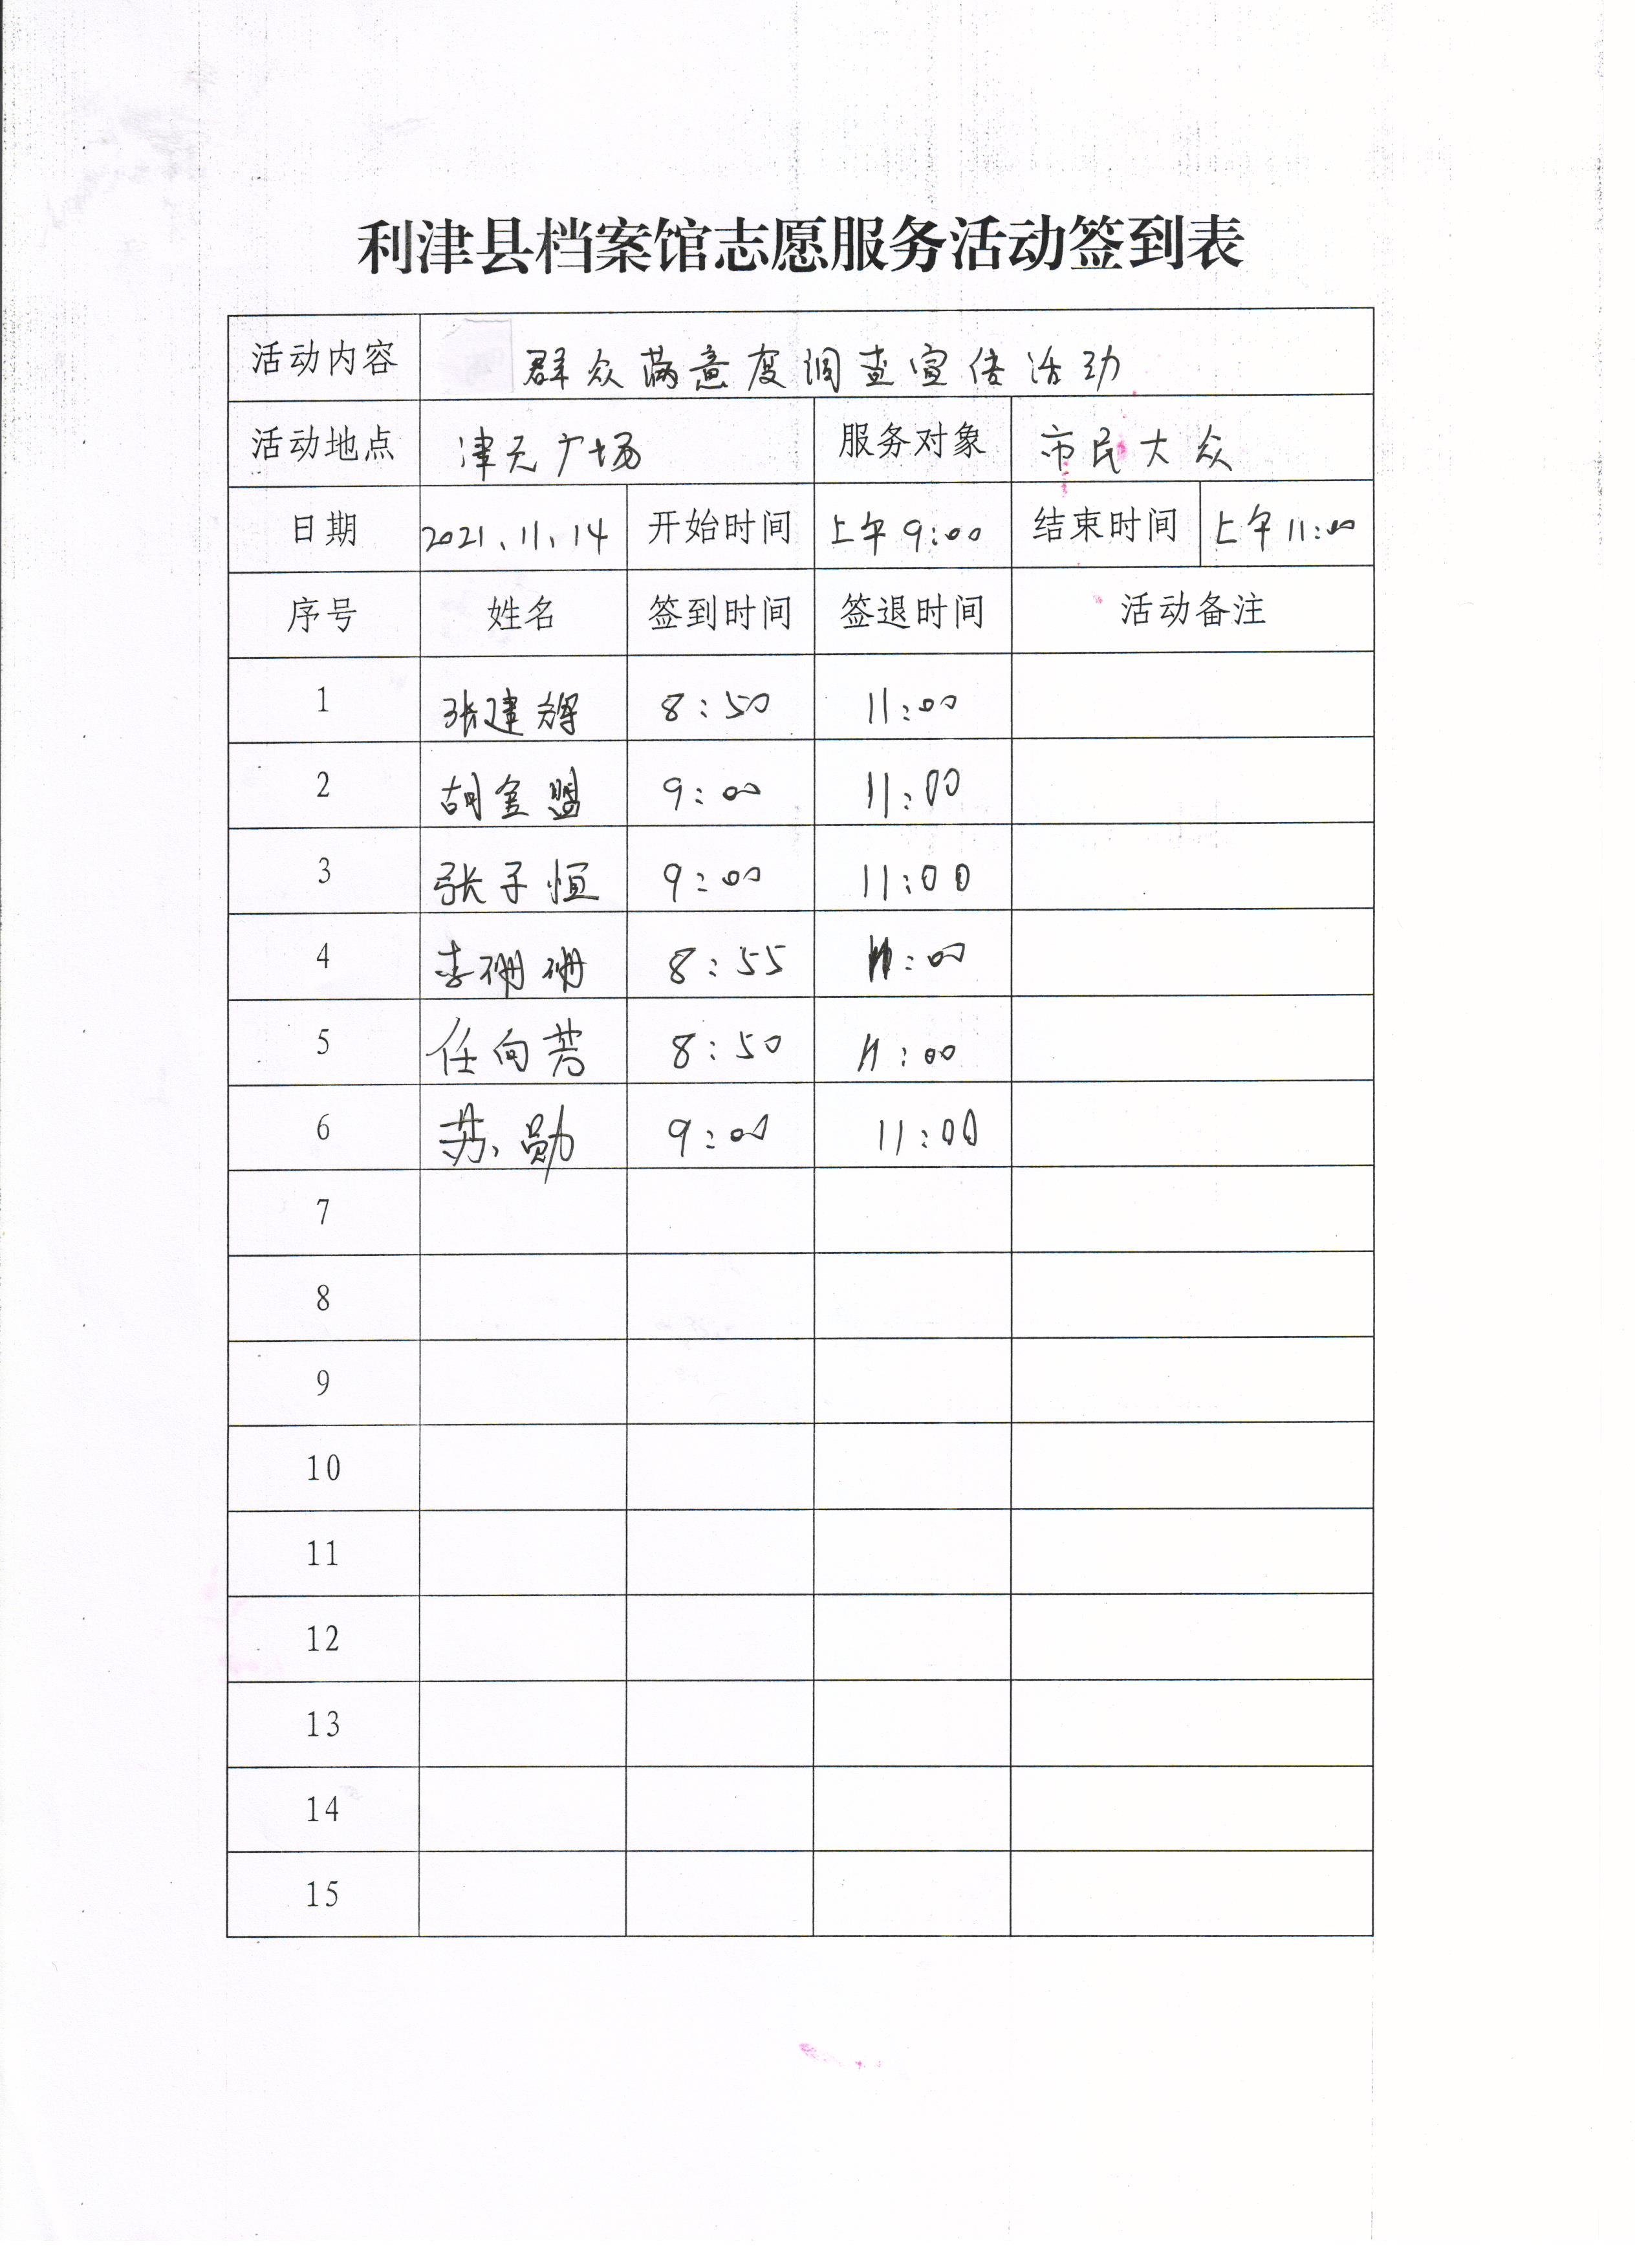 利津县档案馆志愿服务活动签到表
活动内容 群众满意度调查宣传活动
活动地点 津天广场 服务对象 市民大众
日期 2021.11.14 开始时间 上午9:00 结束时间 上午11:00
序号 姓名 签到时间 签退时间 活动备注
1 张建辉 8:50 11:00
2 胡金盟 9:00 11:00
3 张子恒 9:00 11:00
4 李珊珊 8:55 11:00
5 任向芳 8:50 11:00
6 苏勋 9:00 11:00
7
8
9
10
11
12
13
14
15